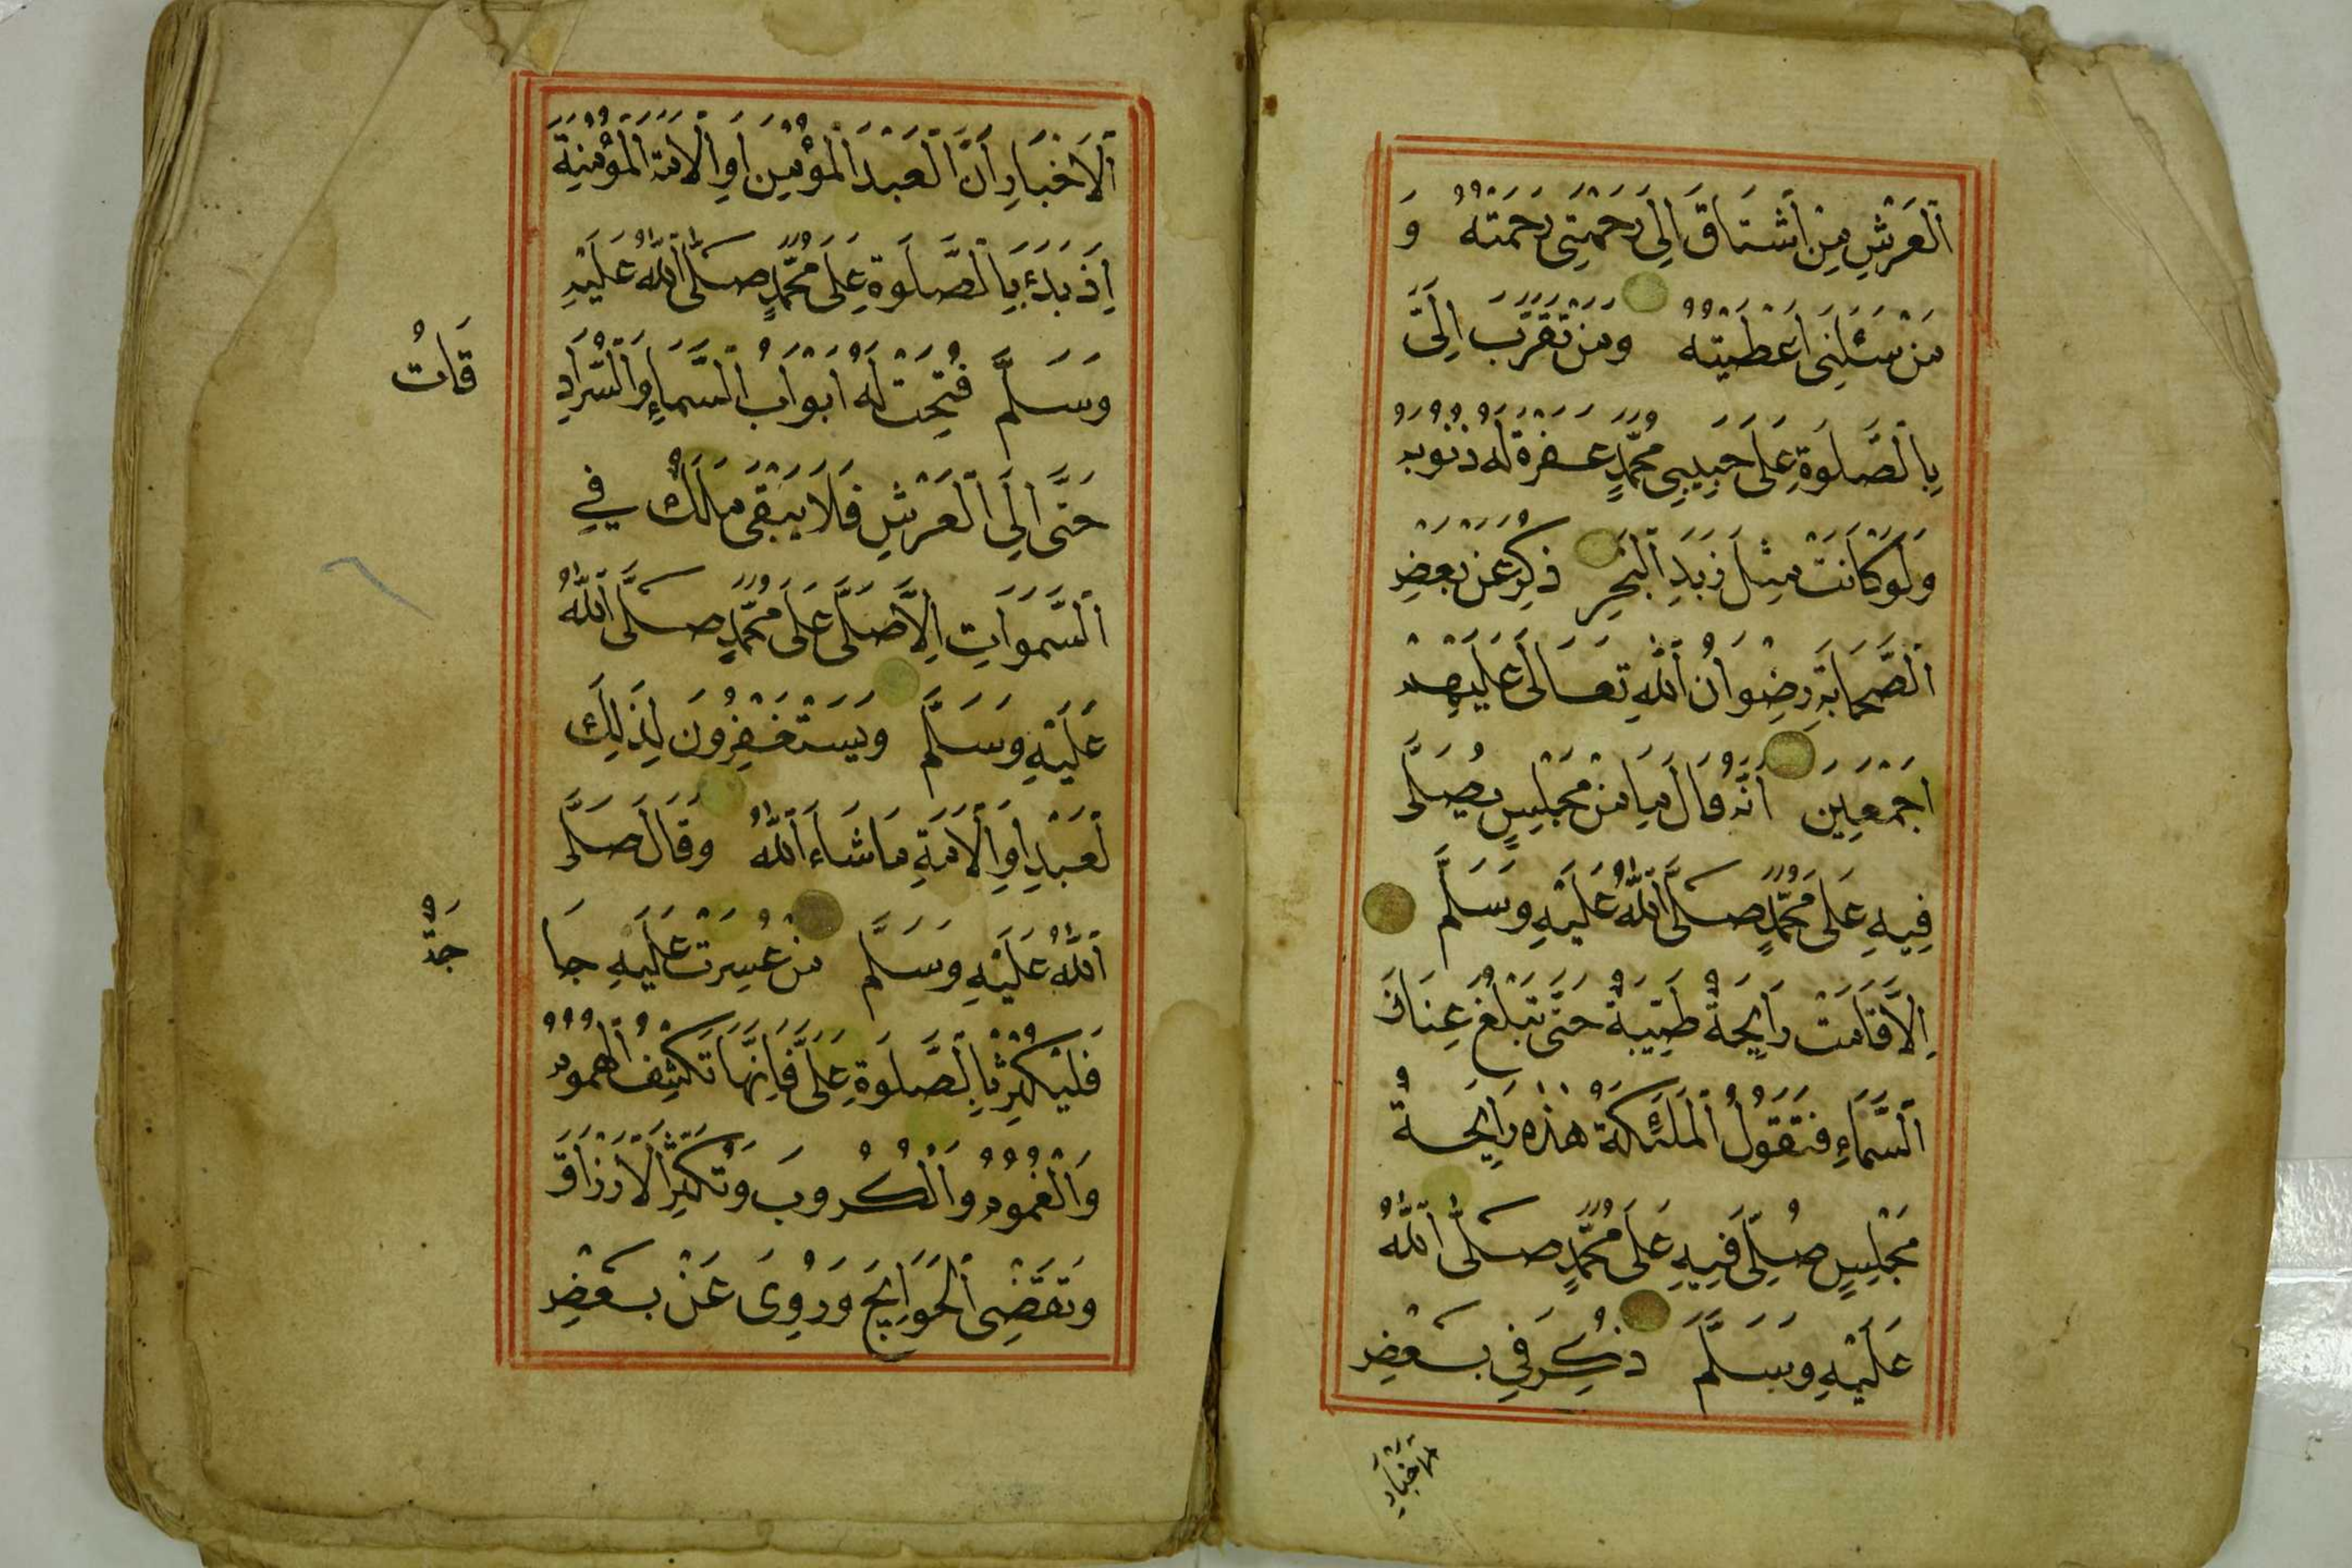 اَلْعَرْشِ مِنْ اَشْتَاقَ اِلٰى رَحْمَتِى رَحِمْتُهُ وَ
مَنْ سَئَلَنِى اَعْطَيْتُهُ وَمَنْ تَقَرَّبَ اِلَىَّ
بِالصَّلٰوةِ عَلَى حَبِيبِى مُحَمَّدٍ غَفَرْةُ لَهُ ذُنُوبَهُ
وَلَوْ كَانَتْ مِثْلَ زَبَدِ الْبَحْرِ ذُكِرَ عَنْ بَعْضِ
اَلصَّحَابَةِ رِضْوَانُ اللّٰهِ تَعَالَى عَلَيْهِمْ
اَجْمَعِينَ اَنَّهُ قَالَ مَا مِنْ مَجْلِسٍ يُصَلَّى
فِيهِ عَلَى مُحَمَّدٍ صَلَّى اللّٰهُ عَلَيْهِ وَسَلَّمَ
اِلَّا قَامَتْ رَايِحَةٌ طَيِّبَةٌ حَتَّى تَبْلُغَ عِنَانَ
اَلسَّمَاءِ فَتَقُولُ الْمَلٰئِكَةُ هٰذِهِ رَايِحَةُ
مَجْلِسٍ صُلِّىَ فِيهِ عَلَى مُحَمَّدٍ صَلَّى اللّٰهُ
عَلَيْهِ وَسَلَّمَ ذُكِرَ فِى بَعْضِ
الاَخْبَارِ
اَلْاَخْبَارِ اَنَّ الْعَبْدَ الْمُؤْمِنَ اَوِ الْاَمَةَ الْمُؤْمِنَةَ
اِذَ بَدَءَ بِالصَّلٰوةِ عَلَى مُحَمَّدٍ صَلَّى اللّٰهُ عَلَيْهِ
وَسَلَّمَ فُتِحَتْ لَهُ اَبْوَابُ السَّمَاءِ وَالسُّرَادِ
قَاتُ
حَتَّى اِلَى الْعَرْشِ فَلَا يَبْقَى مَلَكٌ فِي
اَلسَّمٰوَاتِ اِلَّا صَلَّى عَلَى مُحَمَّدٍ صَلَّى اللّٰهُ
عَلَيْهِ وَسَلَّمَ وَيَسْتَغْفِرُونَ لِذٰلِكَ
لْعَبْدِ اَوِ الْاَمَةِ مَا شَاءَ اللّٰهُ وَقَالَ صَلَّى
اَللّٰهُ عَلَيْهِ وَسَلَّمَ مَنْ عَسُرَتْ عَلَيْهِ حَا
جَةٌ
فَلْيُكْثِرْ بِالصَّلٰوةِ عَلَىَّ فَاِنَّهَا تَكْشِفُ الْهُمُومَ
وَالْغُمُومَ وَالْكُرُوبَ وَتُكْثِرُ الْاَرْزَاقَ
وَتَقْضِى الْحَوَايِجَ وَرُوِىَ عَنْ بَعْضِ